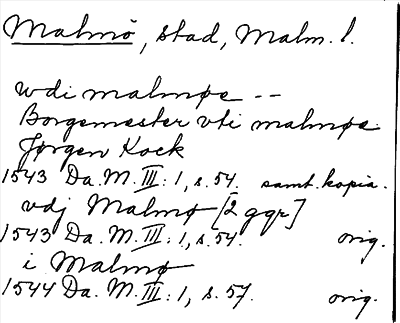 Malmö, stad, Malm. l.
wdi malmøe --
Borgemester vti malmøe
Jørgen Kock
1543 Da. M. III: 1, s. 54. samt. kopia.
vdj Malmø [2 ggr]
1543 Da. M. III: 1, s. 54. orig.
i Malmø
1544 Da. M. III: 1, s. 57. orig.